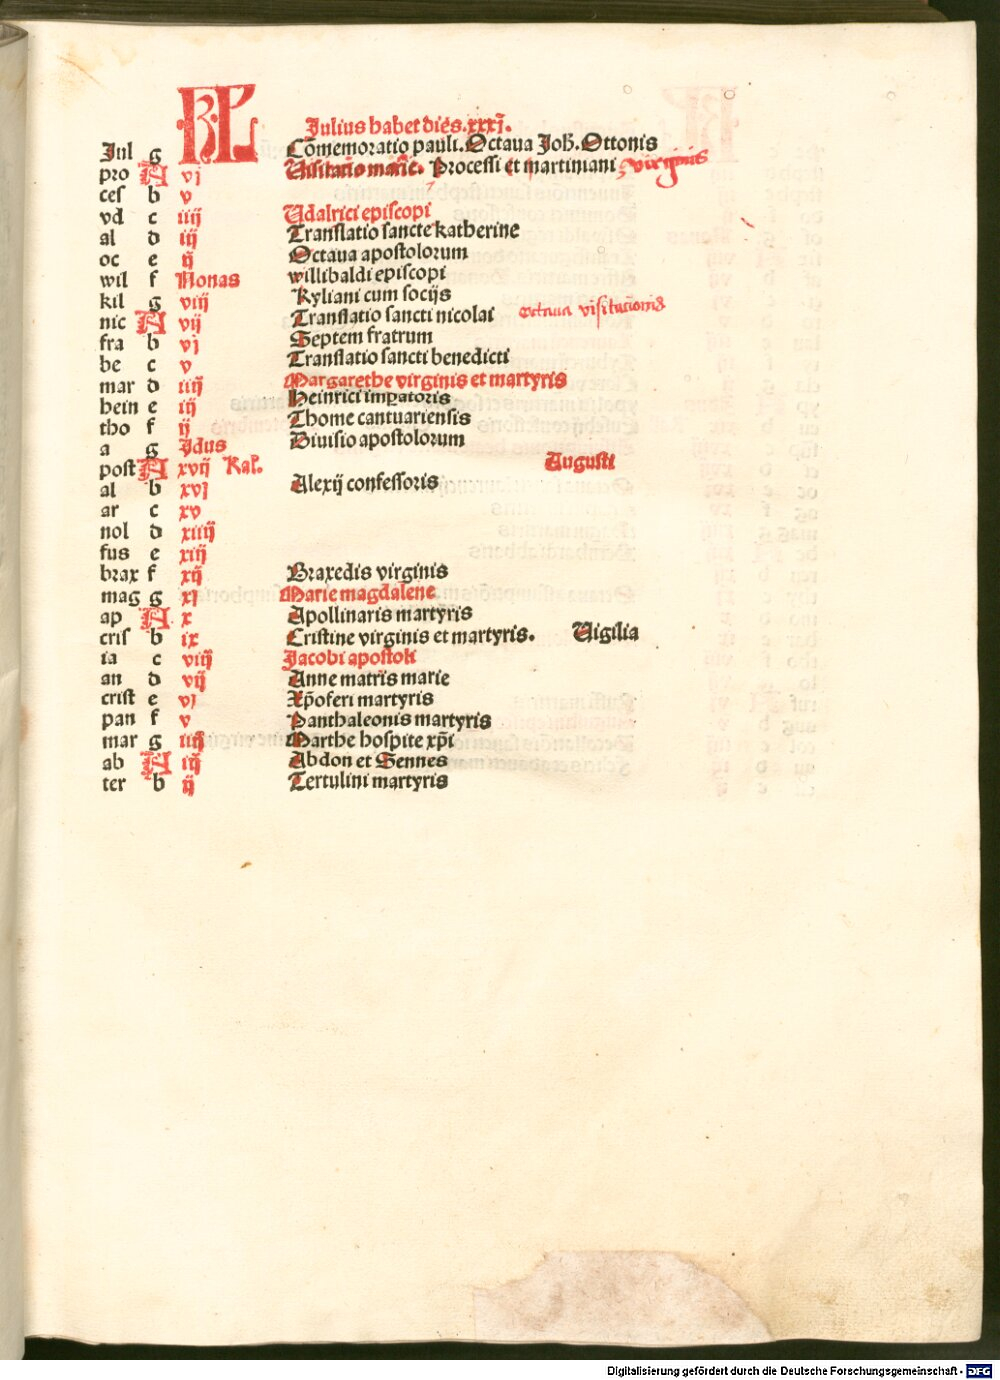 KL Julius habet dies .xxxi.
Jul g Cōmemoratio pauli. Octaua Joh̄. Ottonis
pro A vj Uisitatio marie. Processi et martiniani virginis
ces b v
vd c iiij Udalrici episcopi
al d iij Translatio sancte katherine
oc e ij Octaua apostolorum
wil f Nonas willibaldi episcopi
kil g viij Kyliani cum socijs
nic A vij Translatio sancti nicolai octaua visitationis
fra b vj Septem fratrum
be c v Translatio sancti benedicti
mar d iiij Margarethe virginis et martyris
hein e iij Heinrici imꝑatoris
tho f ij Thome cantuariensis
a g Idus Diuisio apostolorum
post A xvij Kal'. Augusti
al b xvj Alexij confessoris
ar c xv
nol d xiiij
fus e xiij
brax f xij Braxedis virginis
mag g xj Marie magdalene
ap A x Apollinaris martyris
cris b ix Cristine virginis et martyris. Uigilia
ia c viij Jacobi apostoli
an d vij Anne matris marie
crist e vj Xp̄oferi martyris
pan f v Panthaleonis martyris
mar g iiij Marthe hospite xp̄i
ab A iij Abdon et Sennes
ter b ij Tertulini martyris
Digitalisierung gefördert durch die Deutsche Forschungsgemeinschaft - DFG